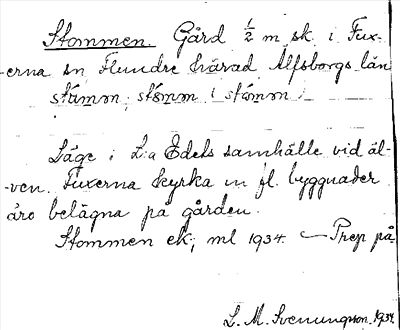 Stommen. Gård 1/2 m sk. i Fux-
erna sn Flundre härad Älfsborgs län
stömm, stömm i stömm
Läge i L:a Edets samhälle vid äl-
ven. Fuxerna kyrka m fl. byggnader
äro belägna på gården.
Stommen ek; ml 1934. — Prep på
L. M. Svenungsson. 1934